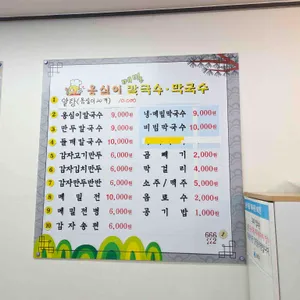 옹심이 칼국수·막국수
1 알탕(옹심이 20개) 10,000
2 옹심이칼국수 9,000원
3 만두칼국수 9,000원
4 들깨칼국수 9,000원
5 감자고기만두 6,000원
6 감자김치만두 6,000원
7 감자만두반반 6,000원
8 메밀전 10,000원
9 메밀전병 6,000원
10 감자송편 6,000원
냉·메밀막국수 9,000원
비빔막국수 10,000원
곱빼기 2,000원
막걸리 4,000원
소주/맥주 5,000원
음료수 2,000원
공기밥 1,000원